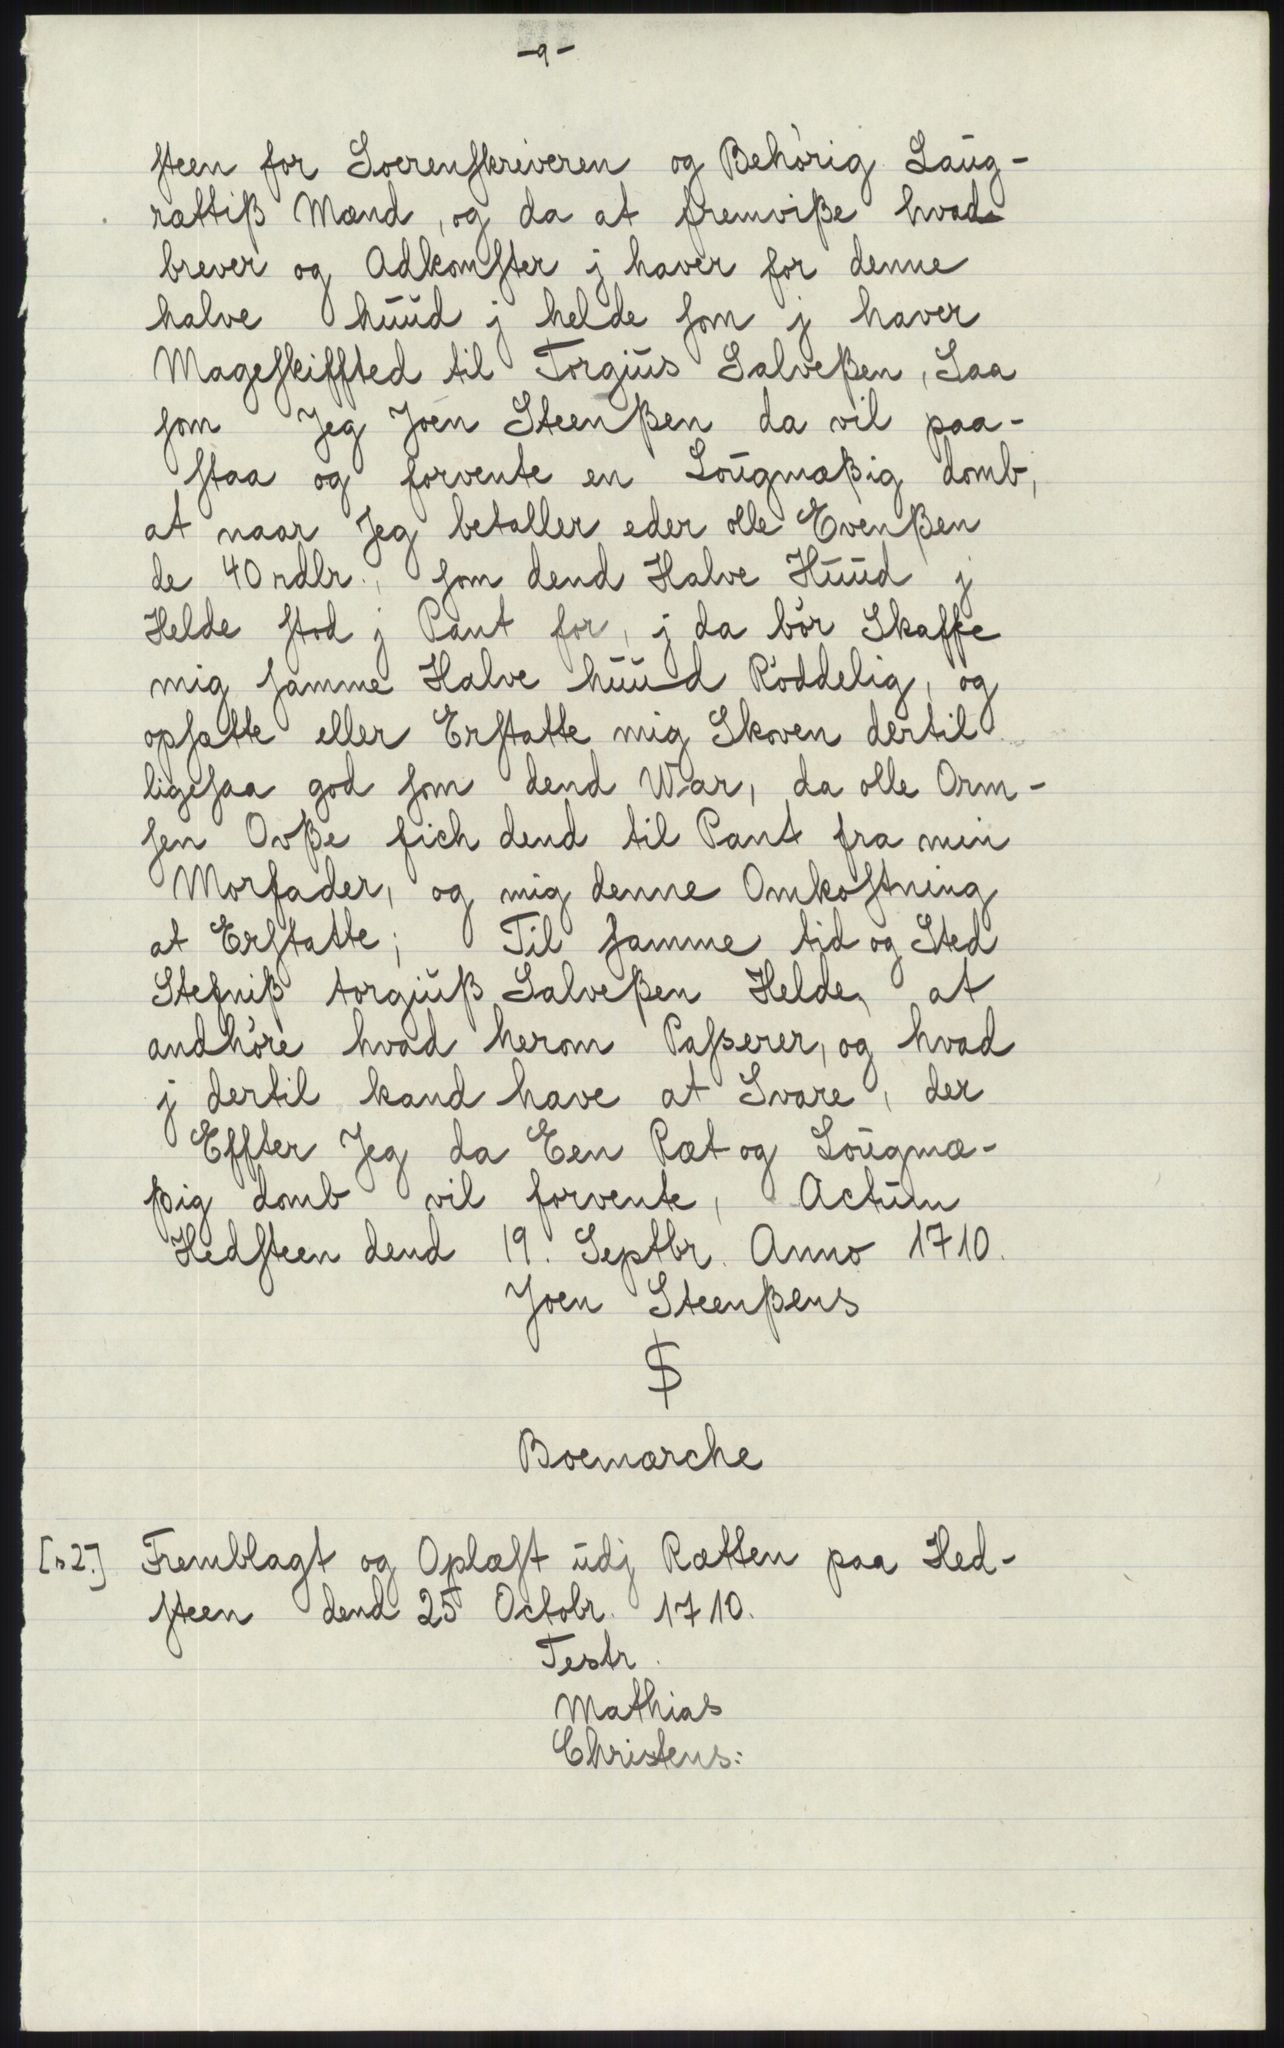 -9-
steen for Soerenskriveren og Behörig Laug-
rættiß Mænd, og da at fremviße hvad
brever og Adkomster j haver for denne
halve huud j helde som j haver
Mageskiffted til Torgius Salveßen, Saa
som Jeg Joen Steenßen da vil paa-
staa og forvente en Lougmæßig domb,
at naar Jeg betaller eder olle Evenßen
de 40 rdlr., som dend Halve Huud j
Helde stod j Pant for, j da bör Skaffe
mig samme Halve huud Röddelig, og
opsætte eller Erstatte mig Skoven dertil
ligesaa god som dend War, da olle Orm-
sen Ovße fich dend til Pant fra min
Morfader, og mig denne Omkostning
at Erstatte; Til samme tid og Sted
Stefniß torgiuß Salveßen Helde, at
andhöre hvad herom Passerer, og hvad
j dertil kand have at Svare, der
Effter Jeg da Een Ræt og Lougmæ-
ßig domb vil forvente, Actum
Hedsteen dend 19. Septbr. Anno 1710.
Joen Steenßens
$
Boemærche
[s2.] Fremblagt og Oplæst udj Rætten paa Hed-
steen dend 25 Octobr. 1710.
Testr.
Mathias
Christens: